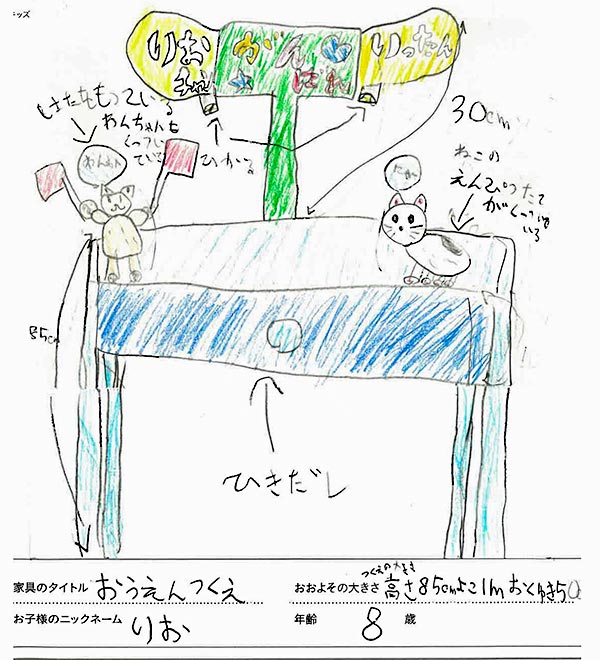 キッズ
りお
ちゃん
がんば
れ
いったん
30cm
はたをもっている
わんちゃんも
くっつい
ている
わんわん
ひかる
にゃー
ねこの
えんぴつたて
がくっついて
いる
85cm
ひきだし
つくえの大きさ
家具のタイトル おうえんつくえ
おおよその大きさ 高さ85cmよこ1mおくゆき50
お子様のニックネーム りお
年齢 8 歳